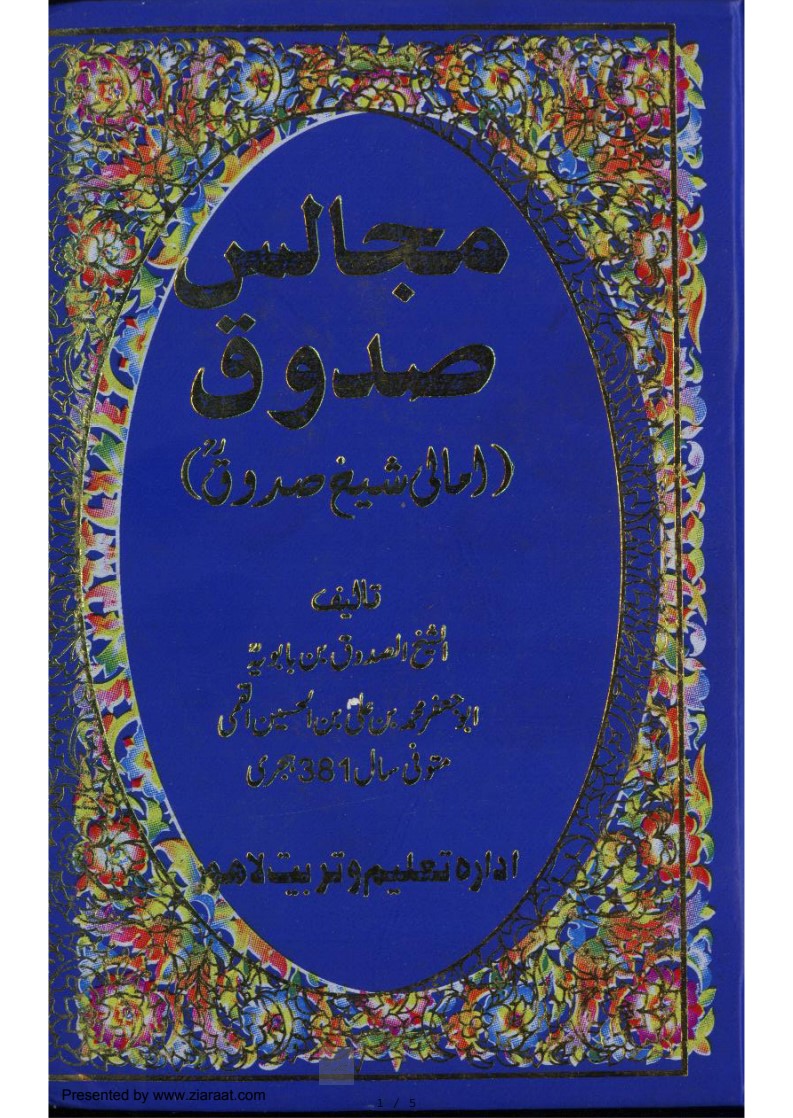 مجالس
صدوق
(امالی شیخ صدوقؒ)
تالیف
الشیخ الصدوق بن بابویہ
ابو جعفر محمد بن علی بن الحسین القمی
متوفی سال 381 ہجری
ادارہ تعلیم و تربیت لاہور
Presented by www.ziaraat.com
1 / 5